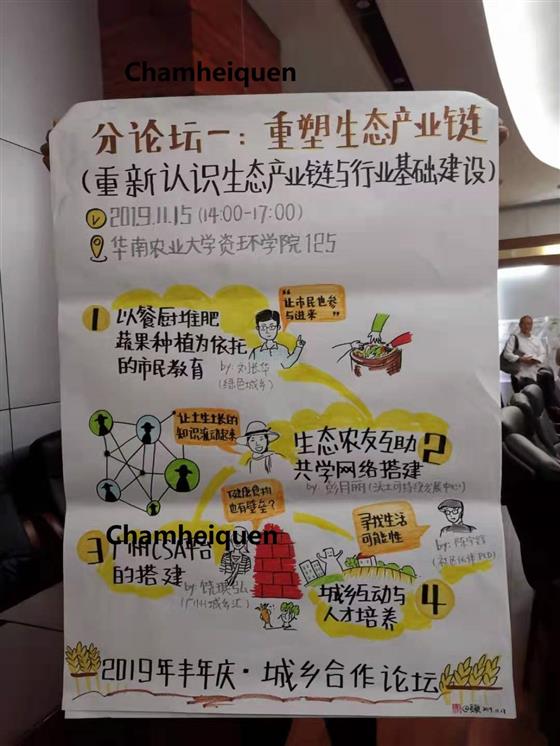 Chamheiquen
分论坛一：重塑生态产业链
（重新认识生态产业链与行业基础建设）
2019.11.15 (14:00-17:00)
华南农业大学资环学院125
1 以餐厨堆肥
蔬果种植为依托
的市民教育
by: 刘长华
(绿色城乡)
“让市民也参
与进来”
“让土生土长的
知识流动起来
生态农友互助 2
共学网络搭建
by: 彭月丽(沃土可持续发展中心)
Chamheiquen
3 广州CSA平台
的搭建
(广州城乡汇)
“健康食物
也有壁垒？
寻找生活
可能性
城乡互动与 4
人才培养
2019年丰年庆·城乡合作论坛